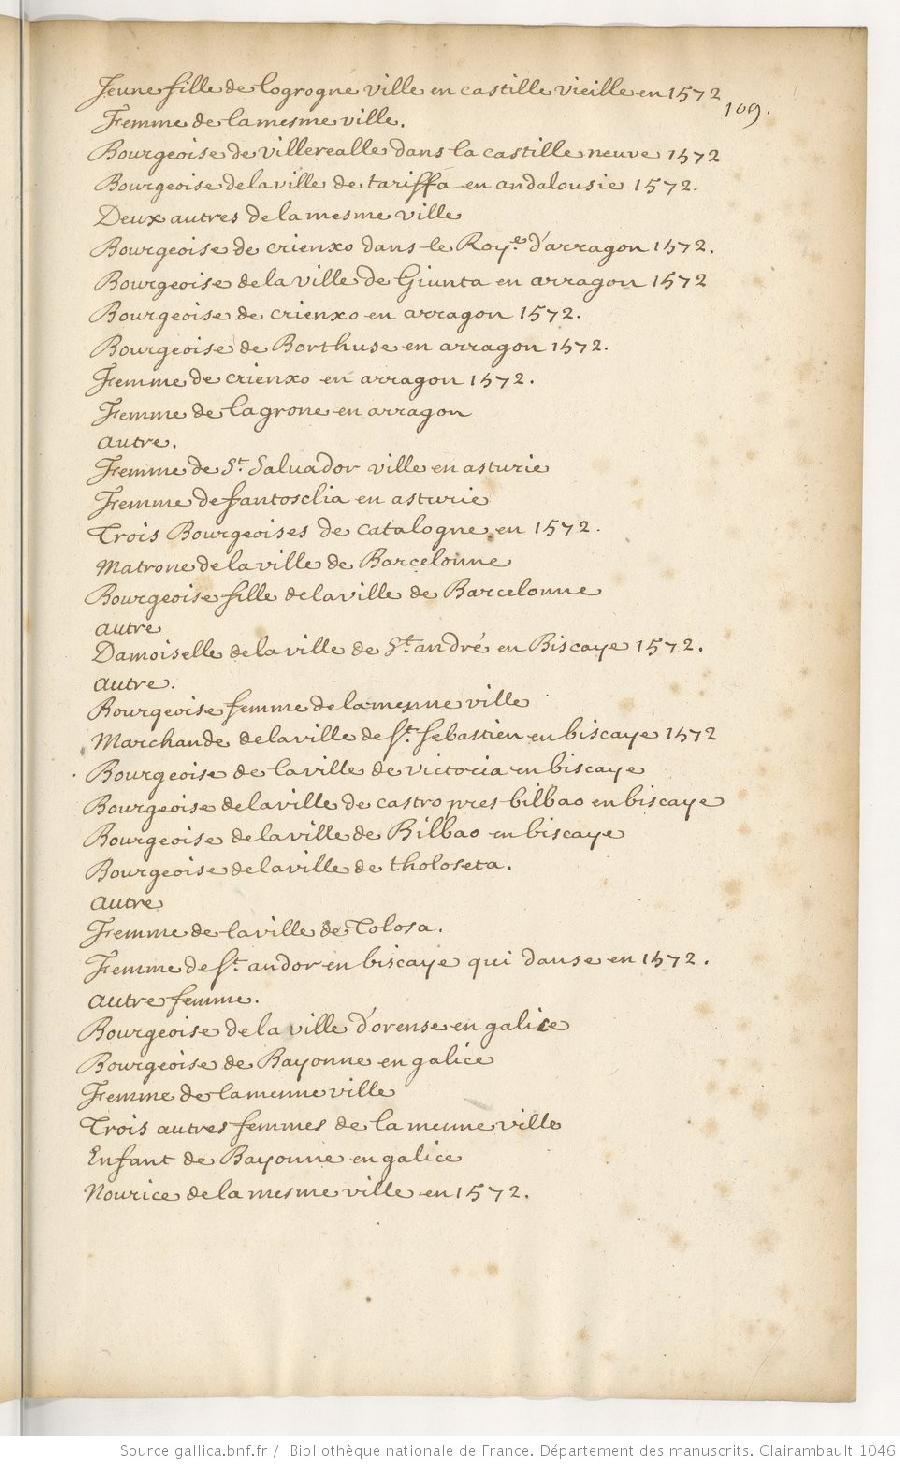 Jeune fille de logrogne ville en castille vieille en 1572
109.
Femme de la mesme ville.
Bourgeoise de villerealle dans la castille neuve 1572
Bourgeoise de la ville de tariffa en andalousie 1572.
Deux autres de la mesme ville
Bourgeoise de crienxo dans le Roy.e d'arragon 1572.
Bourgeoise de la ville de Giunta en arragon 1572
Bourgeoise de crienxo en arragon 1572.
Bourgeoise de Borthuse en arragon 1572.
Femme de crienxo en arragon 1572.
Femme de lagrone en arragon
autre.
Femme de St. Saluador ville en asturie
Femme de santosclia en asturie
Trois Bourgeoises de catalogne en 1572.
Matrone de la ville de Barcelonne
Bourgeoise fille de la ville de Barcelonne
autre
Damoiselle de la ville de St. andré en Biscaye 1572.
autre.
Bourgeoise femme de la mesme ville
Marchande de la ville de St. Sebastien en biscaye 1572
Bourgeoise de la ville de victocia en biscaye
Bourgeoise de la ville de castro pres bilbao en biscaye
Bourgeoise de la ville de Bilbao en biscaye
Bourgeoise de la ville de tholoseta.
autre
Femme de la ville de Tolosa.
Femme de St. andor en biscaye qui danse en 1572.
autre femme.
Bourgeoise de la ville d'orense en galice
Bourgeoise de Bayonne en galice
Femme de la mesme ville
Trois autres femmes de la mesme ville
Enfant de Bayonne en galice
Nourice de la mesme ville en 1572.
Source gallica.bnf.fr / Bibliothèque nationale de France. Département des manuscrits. Clairambault 1046